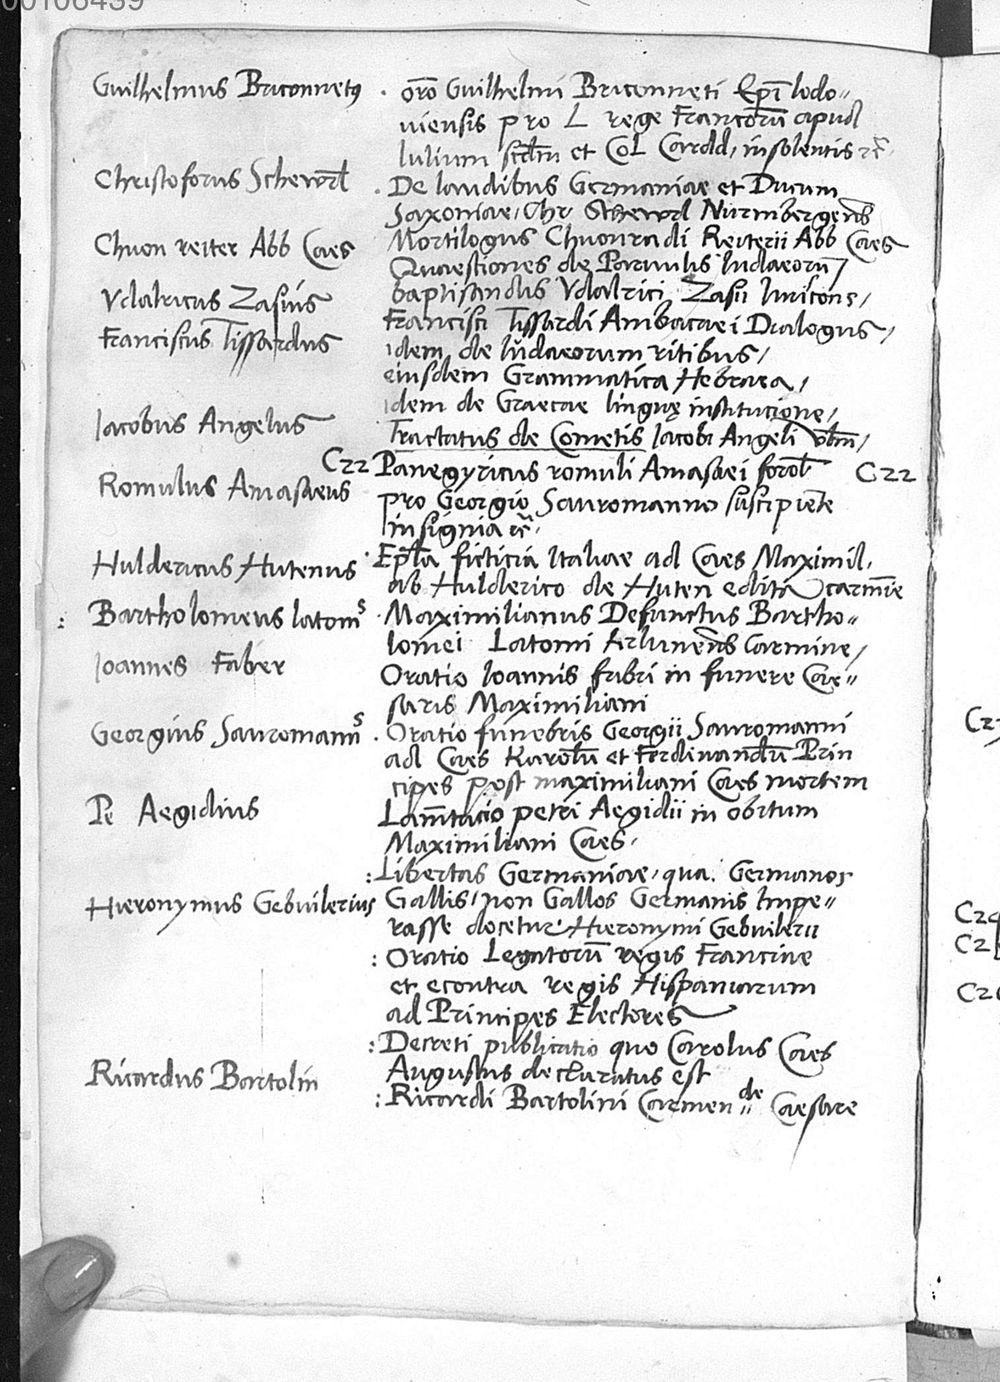 00106439
Guilhelmus Briconnetꝰ · orō Guilhelmi Briconneti Epī lodo„
uiensis pro L rege Francorū apud
Iulium scdm et Col Cardd, insolentis
Christoforus Scheurl · De laudibus Germaniae et Ducum
Saxoniae, Chr Scheurl Nurmbergens
Chuon reiter Abb Caes Mortilogus Chuonradi Reiterii Abb Caes
Quaestiones de Paruulis Iudaeorū
Vdalricus Zasius baptisandis Vdalrici Zasii
Franciscus Tissardus Francisci Tissardi Ambacaei Dialogus,
idem de Iudaeorum ritibus,
eiusdem Grammatica Hebraea,
idem de Graecae linguę institucione,
Iacobus Angelus Tractatus de Cometis Iacobi Angeli
C22 Panegyricus romuli Amasaei forol C22
Romulus Amasaeus pro Georgio Sauromanno suscipiente
insignia
Huldericus Hutenus · Epla ficticia Italiae ad Caes Maximil,
ab Hulderico de Huten edita carmīe
: Bartholomeus latomꝰ · Maximilianus Defunctus Bartho„
lomei Latomi Arlunens Carmine,
Ioannes Faber Oratio Ioannis fabri in funere Cae„
saris Maximiliani
Georgius Sauromannꝰ · Oratio funebris Georgii Sauromanni
ad Caes Karolū et Ferdinandū Prin
cipes post maximiliani Caes mortem
Pe Aegidius Lamtacio petri Aegidii in obitum
Maximiliani Caes·
: Libertas Germaniae, qua. Germanos
Hieronymus Gebuilerius Gallis, non Gallos Germanis Impe„
rasse docetur Hieronymi Gebuilerii
: Oratio Legatorū regis Franciae
et econtra regis Hispaniarum
ad Principes Electores
: Decreti publicatio quo Carolus Caes
Ricardus Bartolin Augustus declaratus est
: Ricardi Bartolini Carmen de Caesare